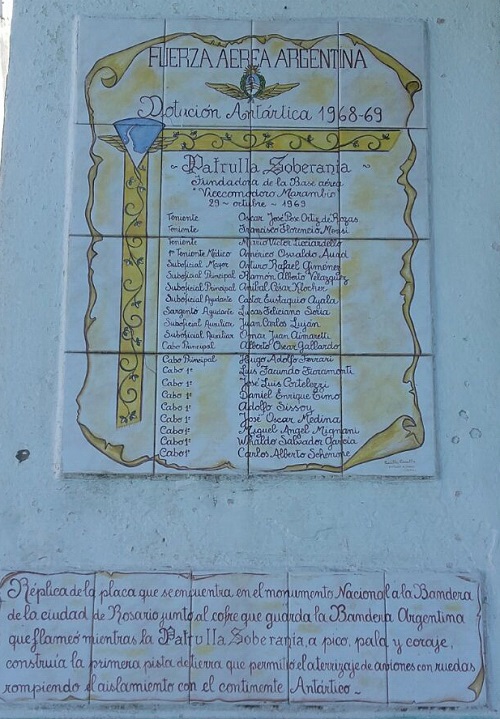 FUERZA AEREA ARGENTINA
Dotación Antártica 1968-69
Patrulla Soberanía
Fundadora de la Base aérea
"Vicecomodoro Marambio"
29 - octubre - 1969
Teniente Oscar José Pose Ortiz de Rozas
Teniente Francisco Florencio Mensi
Teniente Mario Victor Licciardello
1º Teniente Médico Américo Osvaldo Auad
Suboficial Mayor Arturo Rafael Gimenez
Suboficial Principal Ramón Alberto Velazquez
Suboficial Principal Anibal César Klocher
Suboficial Ayudante Castor Eustaquio Ayala
Sargento Ayudante Lucas Feliciano Soria
Suboficial Auxiliar Juan Carlos Luján
Suboficial Auxiliar Omar Juan Aimaretti
Cabo Principal Alberto Oscar Gallardo
Cabo Principal Hugo Adolfo Ferrari
Cabo 1º Luis Facundo Fioramonti
Cabo 1º José Luis Cortelezzi
Cabo 1º Daniel Enrique Elmo
Cabo 1º Adolfo Sussoy
Cabo 1º José Oscar Medina
Cabo 1º Miguel Angel Mignani
Cabo 1º Whaldo Salvador García
Cabo 1º Carlos Alberto Schenone
Réplica de la placa que se encuentra en el monumento Nacional a la Bandera
de la ciudad de Rosario junto al cofre que guarda la Bandera Argentina
que flameó mientras la Patrulla Soberanía, a pico, pala y coraje,
construía la primera pista de tierra que permitió el aterrizaje de aviones con ruedas
rompiendo el aislamiento con el continente Antártico.-